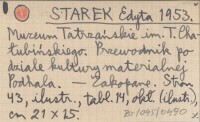 STAREK Edyta 1953.
Muzeum Tatrzańskie im. T. Cha-
łubińskiego. Przewodnik po
dziale kultury materialnej
Podhala. — Zakopane. Stron
43, ilustr., tabl. 14, okł. (ilustr.),
cm 21 x 15.